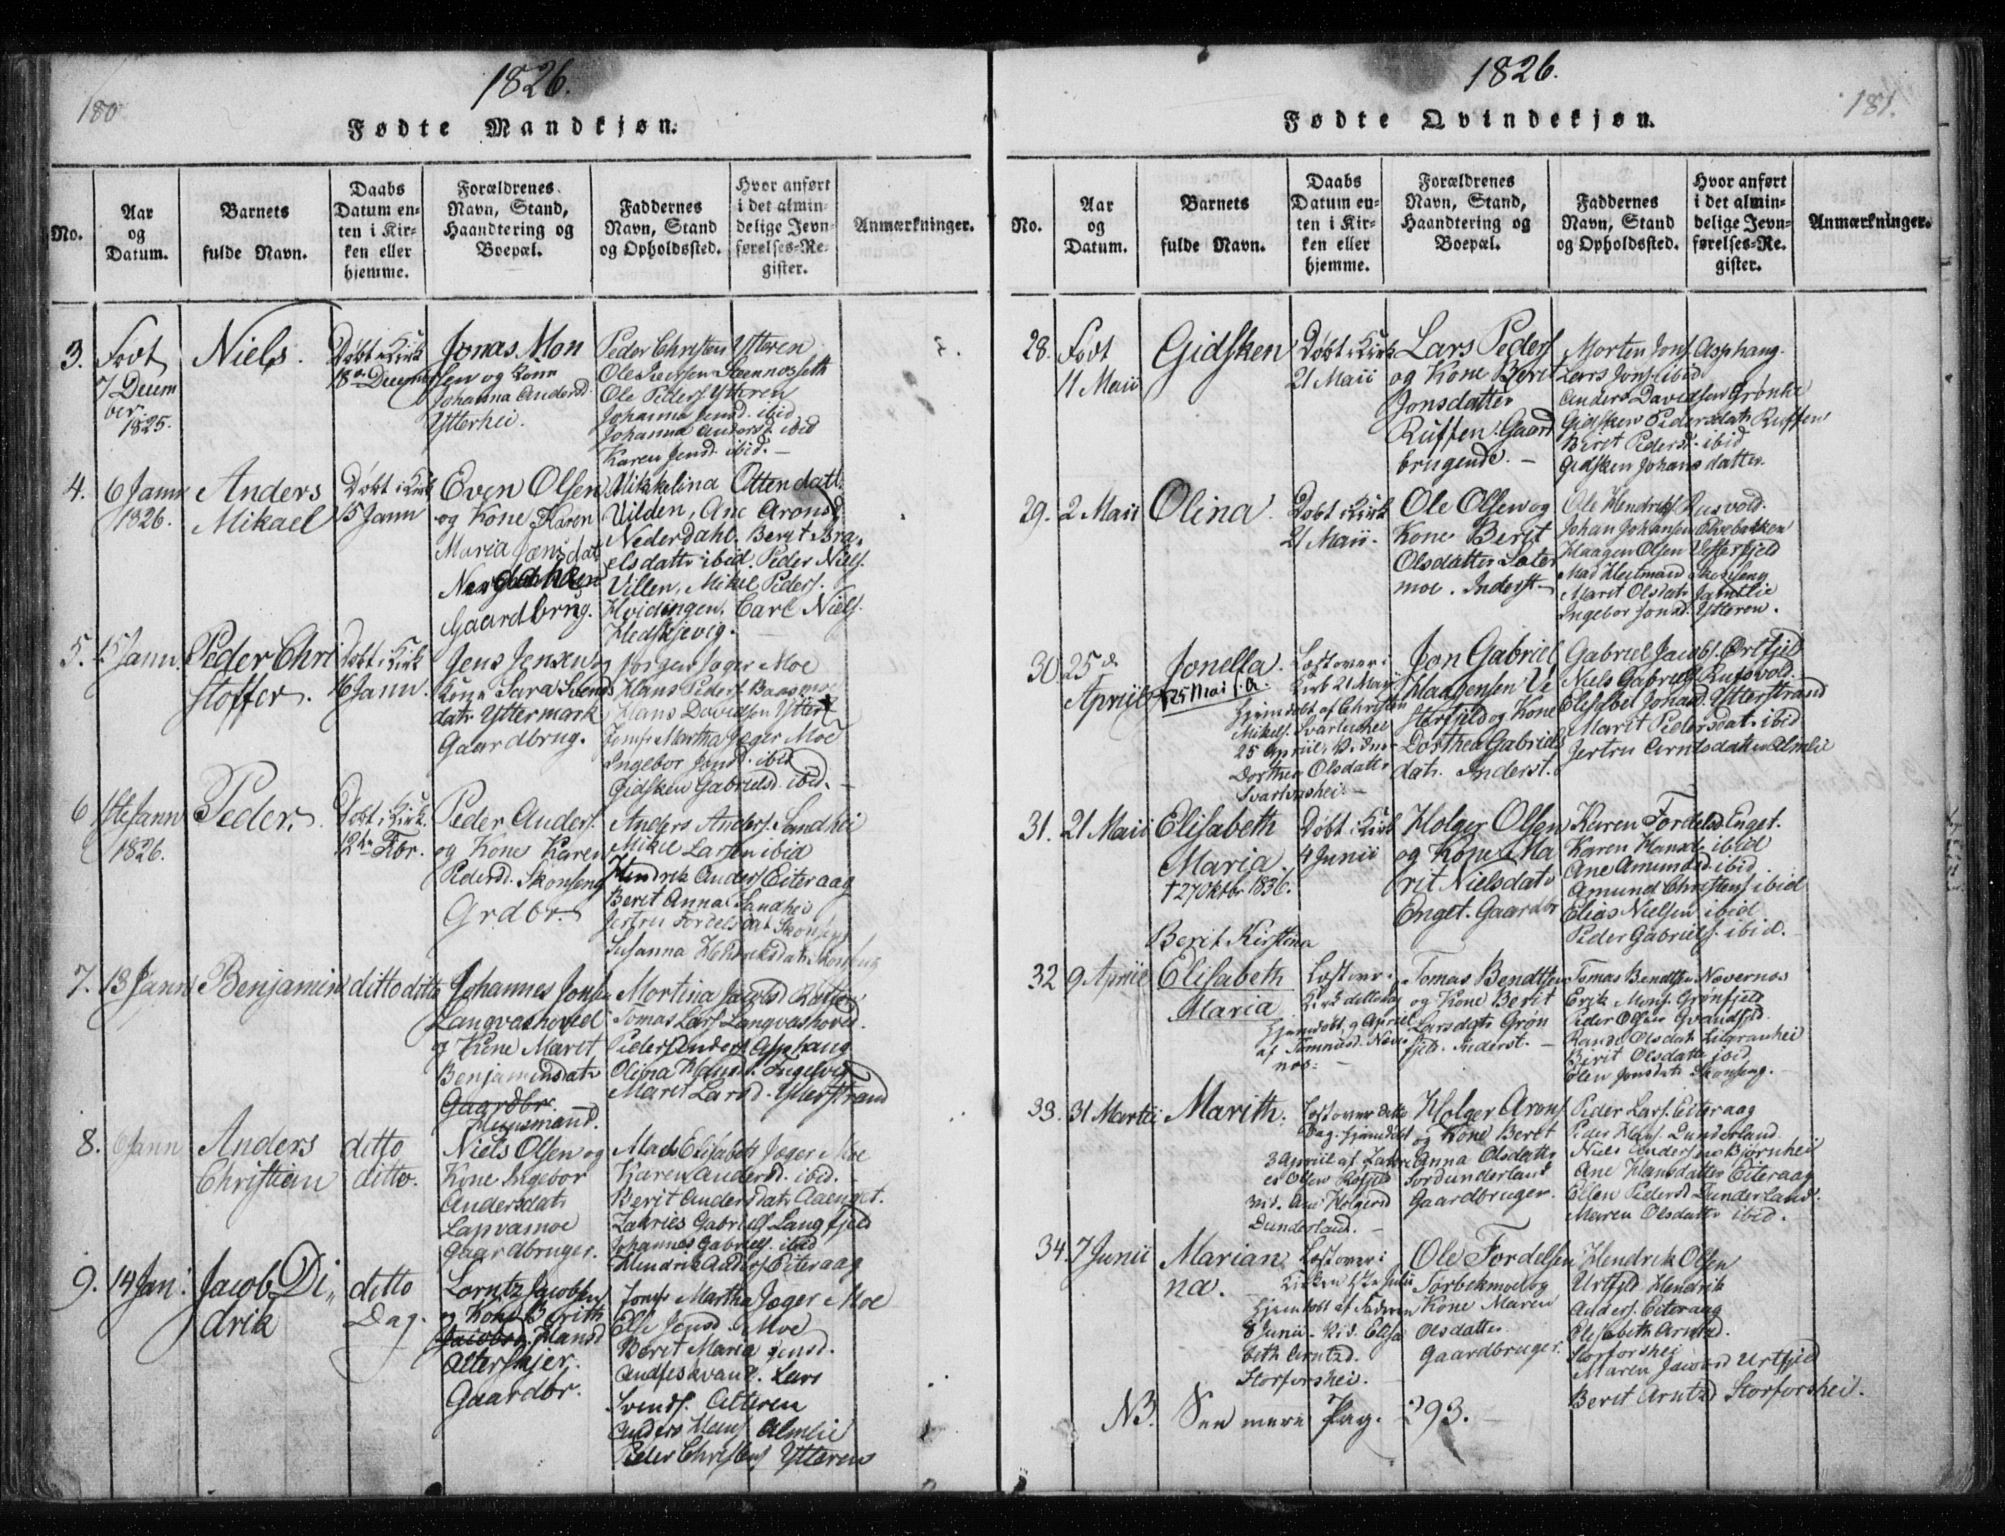 180
1826.
Fødte Mandkjøn.
No.
Aar
og
Datum.
Barnets
fulde Navn.
Daabs
Datum en-
ten i Kir-
ken eller
hjemme.
Forældrenes
Navn, Stand,
Haandtering og
Boepæl.
Faddernes
Navn, Stand
og Opholdssted.
Hvor anført
i det almin-
delige Jevn-
førelses-Re-
gister.
Anmærkninger.
3.
Født
7 Decem
ber
1825.
Niels.
Døbt i Kirk
18de Decemb
Jonas Mon
sen og Kone
Johanna Andersd.
Ytterhei.
Peder Christens Ytteren
Ole Pedersen
Ole Peders Ytteren
Johanna Jensd. ibid
Johanna Andersd. ibid
Karen Jensd. ibid.
4.
6 Jann
1826.
Anders
Mikael
Døbt i Kirk
15 Jann
Even Olsen
og Kone Karen
Maria Jensdat
Gaardbrug.
Mikkelina Ottendatt.
Vilden, Ane Aronsd
Nederdahl. Berit Bra-
elsdatter ibid. Peder Niels.
Villen, Mikel Peders.
Hvidingen, Carl Niels.
Hedskjevig.
5.
15 Jann.
Peder Chri
stoffer.
Døbt i Kirk
16 Jann.
Jens Jensen og
Kone Sara
datr Yttermark
Gaardbrug.
Jørgen Jæger Moe
Hans Peders Baasmo
Hans Davidsen Ytter
Jomfr Martha Jæger Moe
Ingebor Jonsd. ibid
Gidsken Gabrielsd. ibid.
6
1ste Jann
1826.
Peder.
Døbt i Kirk.
12te Fbr.
Peder Anders.
og Kone Karen
Pedersd. Skonseng
Grdbr.
Anders Anders. Sandhei
Mikel Larsen ibid
Hendrik Anders Eiteraag
Berit Anna Sandhei
Jertru Fordelsdat Skonseng
Susanna Hendriksdatr Skonseng
7.
13 Jann
Benjamin
ditto ditto
Johannes Jons
Langvashoved
og Kone Maret
Benjaminsdatr
Gaardbr.
Huusmand.
Mortina Jacobsd
Tomas Lars Langvashoved.
Peder Anders Asphang
Olina Hansd. Engelvig
Maret Larsd. Ytterstrand
8.
6 Jann
Anders
Christian
ditto
ditto.
Niels Olsen og
Kone Ingebor
Andersdatr
Lapvamoe
Gaardbruger.
Mads Elisabeth Jæger Moe
Karen Andersd. ibid.
Berit Andersdatr Aaenget.
Zakries Gabriels Langfjeld
Johannes Gabriels. ibid
Hendrik Anders Eiteraag
9.
14 Jan.
Jacob Di,,
drik
ditto
Dag.
Lorntz Jacobsen
og Kone Berith
Jacobsd. Hansd
Alterskjer.
Gaardbr.
Jomfr Martha Jæger Moe
Else Jensd. Moe
Berit Maria Jensd.
Andfiskvand. Lars
Svends. Alteren
Anders Hans Almlie
Peder Christens Ytteren
1826.
181.
Fødte Qvindekjøn.
No.
Aar
og
Datum.
Barnets
fulde Navn.
Daabs
Datum en-
ten i Kir-
ken eller
hjemme.
Forældrenes
Navn, Stand,
Haandtering og
Boepæl.
Faddernes
Navn, Stand
og Opholdssted.
Hvor anført
i det almin-
delige Jevn-
førelses-Re-
gister.
Anmærkninger.
28.
Født
11 Maii
Gidsken
Døbt i Kirk
21 Maii
Lars Peders
og Kone Berit
Jonsdatter
Ruffen. Gaard
brugende.
Morten Jons. Asphang.
Lars Jons. ibid
Anders Davidsen Grønlie
Gidsken Pedersdatr Ruffen
Berit Pedersd. ibid
Gidsken Johansdatter.
29.
2 Maii
Olina
Døbt i Kirk
21 Maii.
Ole Olsen og
Kone Berit
Olsdatter Sæter
moe. Inderst.
Ole Hendriks Rusvold.
Johan Johansen
Haagen Olsen Vesterfjeld
Mad Heitman Skonseng
Maret Olsdatr
Ingebor Jonsd. Ytteren.
30
25de
Apriil
Jonella.
† 25 Mai s. A.
Læst over i
Kirk 21 Maii
Hjemdøbt af Christen
Mikels. Svartvashei
25 Apriil. Vidne
Dorthea Olsdatter
Svartvashei.
Jon Gabriel
Haagensen Ve
sterfjeld og Kone
Dorthea Gabriels
datr. Inderst.
Gabriel Jacobs. Ørtfjeld
Niels Gabriels Rusvold.
Elisabet Johansd. Ytterstrand
Marit Pedersdat. ibid
Jertru Arntsdatter Almlie
31.
21 Maii
Elisabeth
Maria.
† 27 Oktbr. 1836.
Døbt i Kirk
4 Junii
Holger Olsen
og Kone Ma
rit Nielsdatr
Enget. Gaardbr
Karen Fordelsd Enget.
Karen Hansd. ibid
Ane Amundsd ibid
Amund Christens ibid
Elias Nielsen ibid
Peder Gabriels. ibid.
32
9 Apriil
Berit Kirstina
Elisabeth
Maria
Læst over i
Kirk ditto Dag
Hjemdøbt 9 Apriil
af
Tomas Bendtsen
og Kone Berit
Larsdatr Grøn
fjeld. Inderst.
Tomas Bendts Nevernes
Erik Mons. Grønfjeld
Peder Olsen
Randi Olsdatr
Berit Olsdatter ibid
Elen Jonsdatr Skonseng.
33.
31 Martii
Marith.
Læst over ditto
Dag. Hjemdøbt
3 Apriil af Zakri
es Olsen
vid. Ane Holgersd
Dunderland.
Holger Arons
og Kone Beret
Anna Olsdatter
Nordunderland
Gaardbruger.
Peder Lars. Eiteraag
Peder Hans. Dunderland
Niels Andersen Bjørnhei
Ane Hansdatter Eiteraag
Ellen Pedersd Dunderland.
Maren Olsdatter ibid.
34.
7 Junii
Marian
na.
Læst over i
Kirken Julii
Hjemdøbt af Faderen
8 Junii. Vid. Elisa
beth Arntzd.
Storforshei.
Ole Fordelsen
og
Kone Maren
Olsdatter
Gaardbruger.
Hendrik Olsen
Urtfjeld Hendrik
Anders. Eiteraag
Elisabeth Arntzd.
Storforshei
Maren Jacobsd Urtfjeld
Berit Arntzd Storforshei.
NB. See mere Pag. 293.